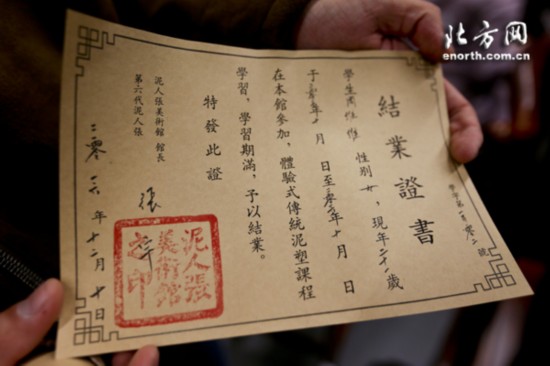 北方网
www.enorth.com.cn
結業證書
學生 性別女，現年二十一歲
于 年十月 日至 年十月 日
在本館參加，體驗式傳統泥塑課程
學習，學習期滿，予以結業。
特發此證
泥人張美術館 館長
第六代泥人張 張宇
二零一六年十二月十日
泥人張
美術館
之印